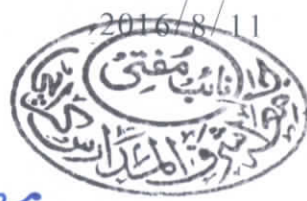 2016/8/11
نائب مفتی
اشرف المدارس کراچی